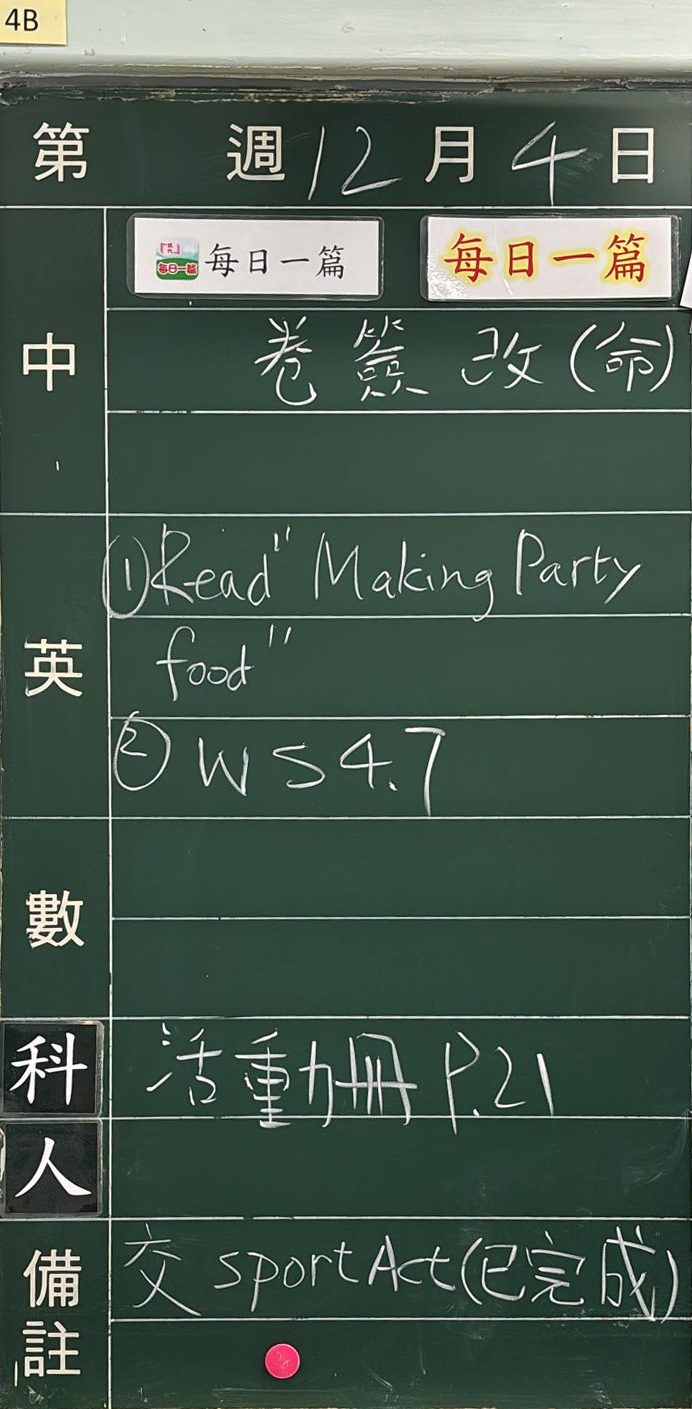 4B
第 週 12 月 4 日
每日一篇 每日一篇
中
卷 簽 改 (命)
英
① Read "Making Party
food"
② WS 4.7
數
科
活動冊 P.21
人
備註
交 sport Act (已完成)